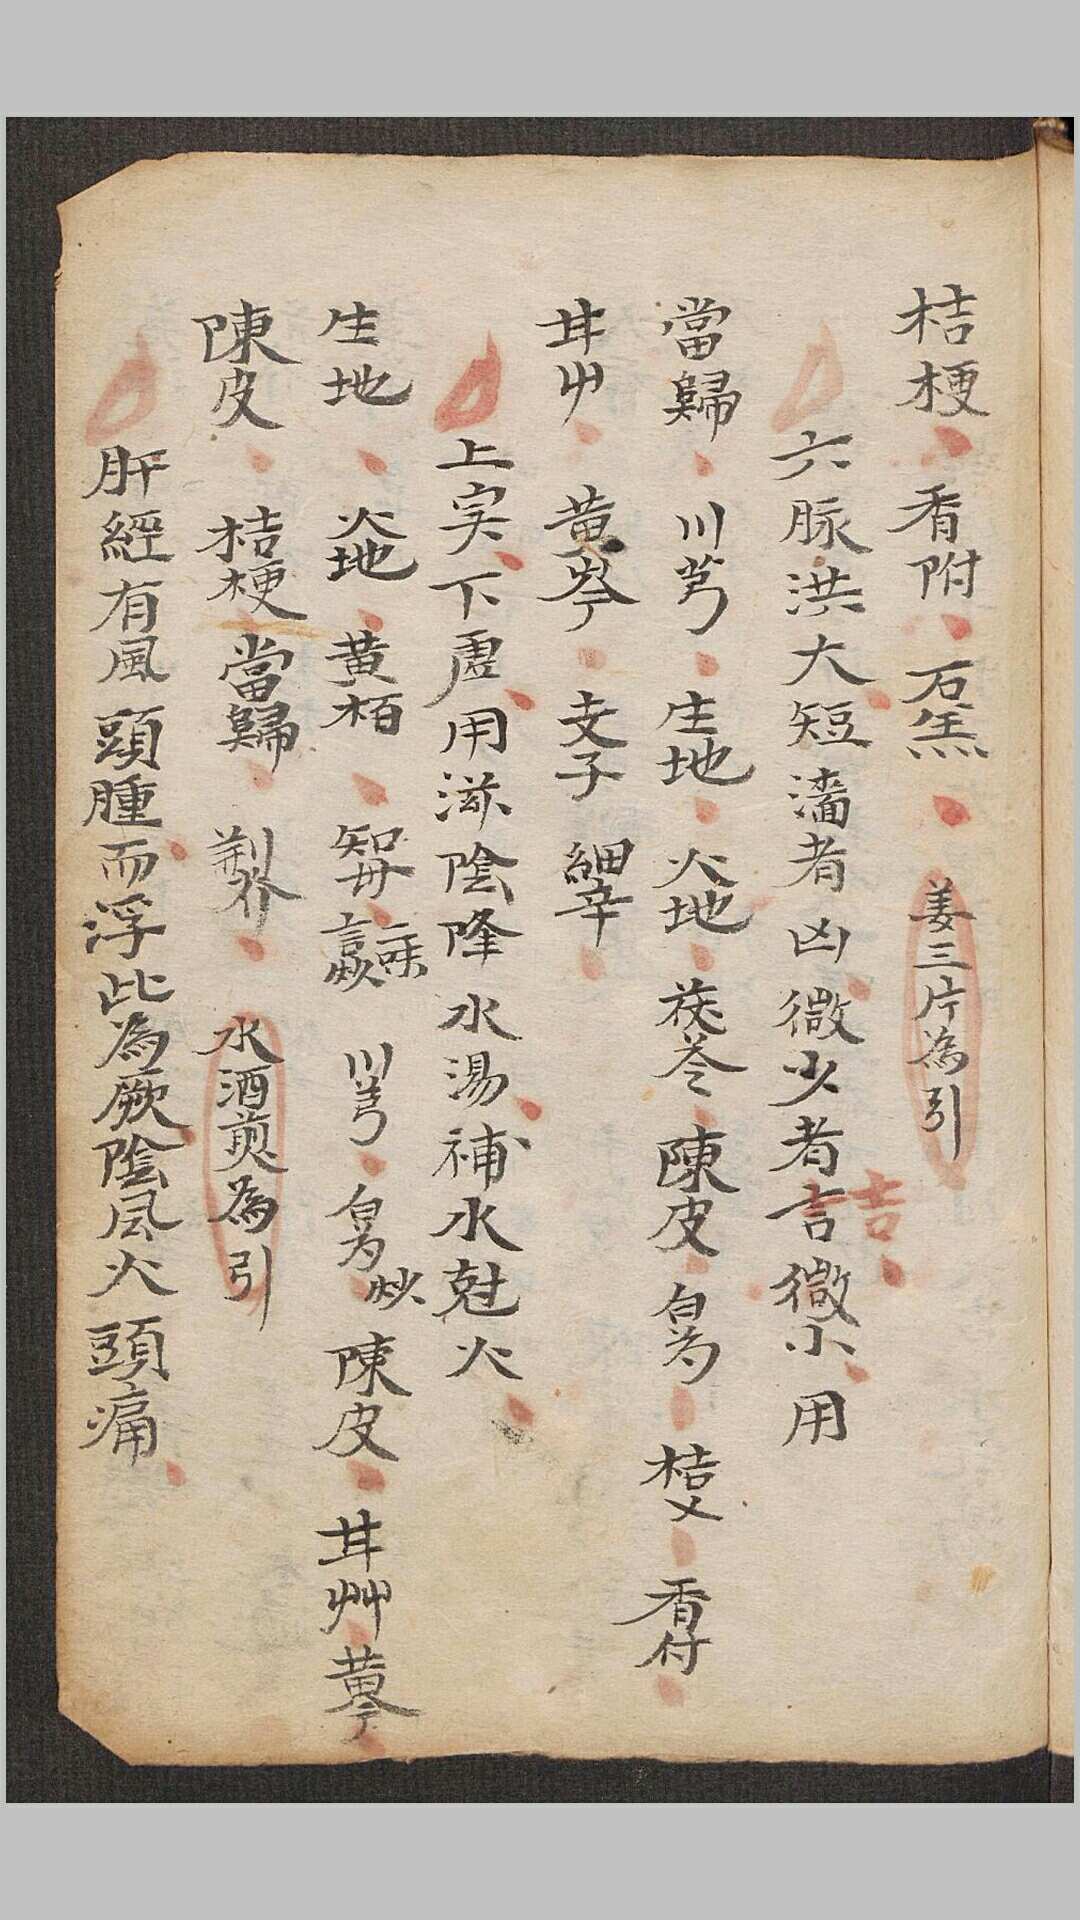 桔梗 香附 石羔 姜三片為引
六脉洪大短濇者凶微少者言微小用
吉
當歸 川芎 生地 火地 茯苓 陳皮 白芍 桔艾 香付
甘艸 黄芩 支子 細辛
上实下虚用滋陰降水湯補水尅火
生地 火地 黄栢 知母 二味言炒 川芎 白芍炒 陳皮 甘艸 黄芩
陳皮 桔梗 當歸 荆芥 水酒煎為引
肝經有風頭腫而浮此為厥陰風火頭痛